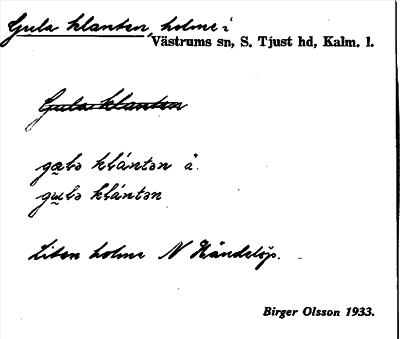 Gula klanten, holme i
Västrums sn, S. Tjust hd, Kalm. l.
Gula klanten
gœlɔ klántən å.
gulɔ klántən
Liten holme N Händelöp.
Birger Olsson 1933.